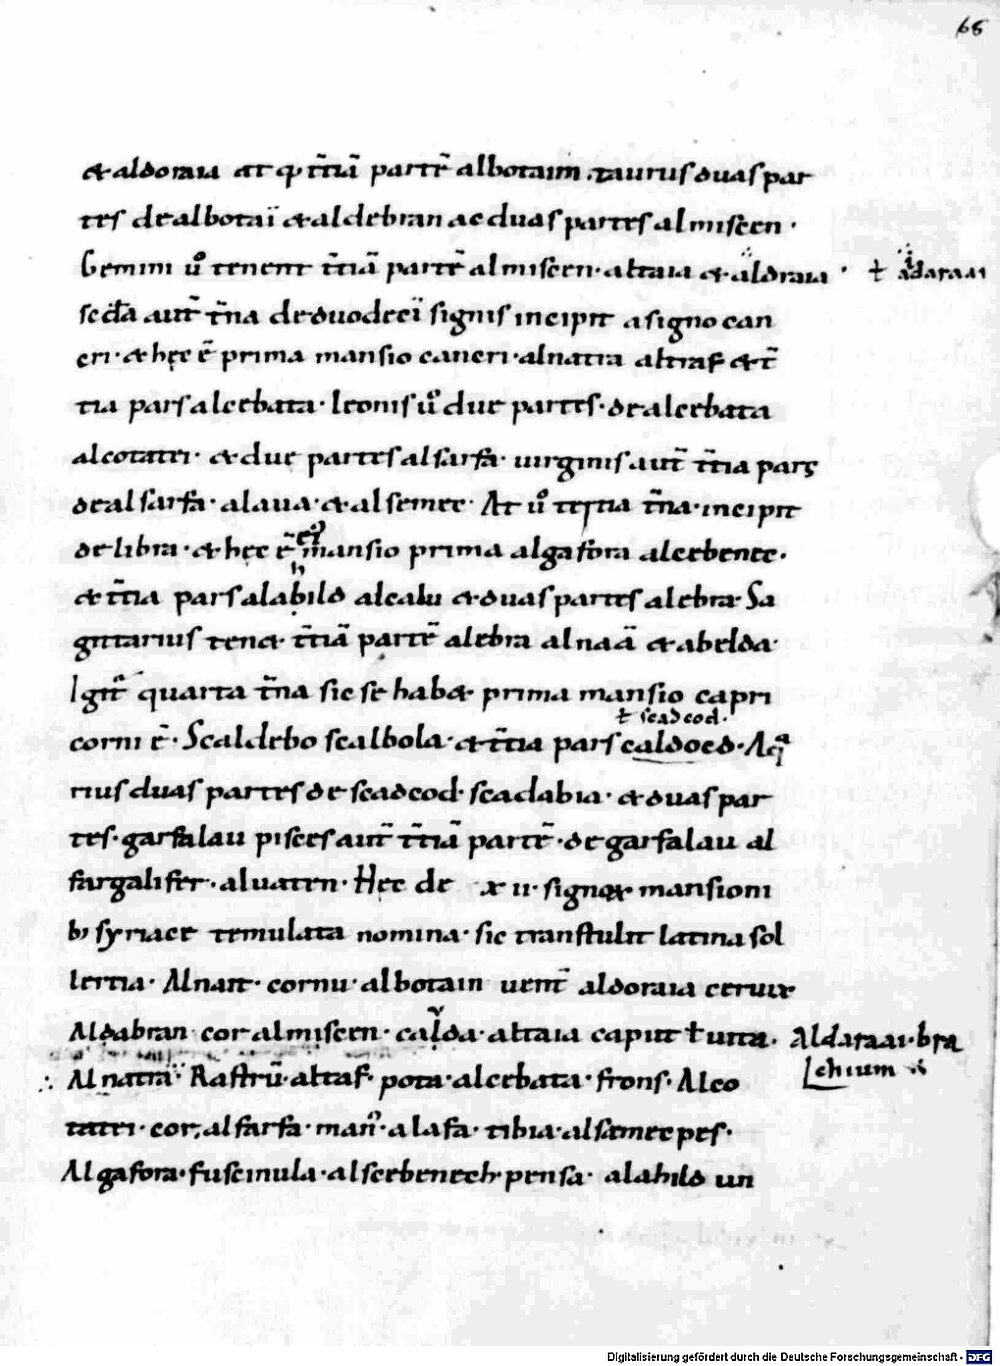 68
& aldoraia at q; t̄tiā partē albotaim. taurus duas par
tes de albotaī & aldebran ac duas partes almiscen·
Gemini ů tenent t̄tiā partē almiscen· altaia & aldraia · ł adaraai
scd̄a aut̄ t̄na de duodecī signis incipit a signo can
cri· & hęc ē prima mansio cancri· alnatra altraf & t̄
tia pars alcebata· leonis ů due partes· de alcebata
alcotatei· & due partes alsarfa· uirginis aut̄ t̄tia pars
de alsarfa· alaua· & alsemec· At ů tertia t̄na· incipit
de libra· & hęc ē mansio prima algafora alcebenec·
& t̄tia pars alahild alcalu & duas partes alebra· Sa
gittarius ten& t̄tiā partē alebra alnaā & abelda·
Igit̄ quarta t̄na sic se hab& prima mansio capri
ł scadcod·
corni ē· Scaldebo scalbola· & t̄tia pars caldoed· Aq̄
rius duas partes de scadcod· scadabia· & duas par
tes· garfalau pisces aut̄ t̄tiā partē· de garfalau al
fargalifer· aluaten· Hęc de x ii· signoꝝ mansioni
b; syriace temulata nomina· sic transtulit latina sol
lertia· Alnait· cornu· albotain uent̄ aldoraia ceruix
Aldabran cor almiscen· calda· altaia caput ł uitta. Aldaraai· bra
chium
Alnatra· Rastrū· altaf· pota· alcebata· frons· Alco
tatei· cor, alfarfa· man̊· alafa· tibia· alsemec pes·
Algafora· fuscinula· alscebenech· pensa· alahild un
Digitalisierung gefördert durch die Deutsche Forschungsgemeinschaft - DFG